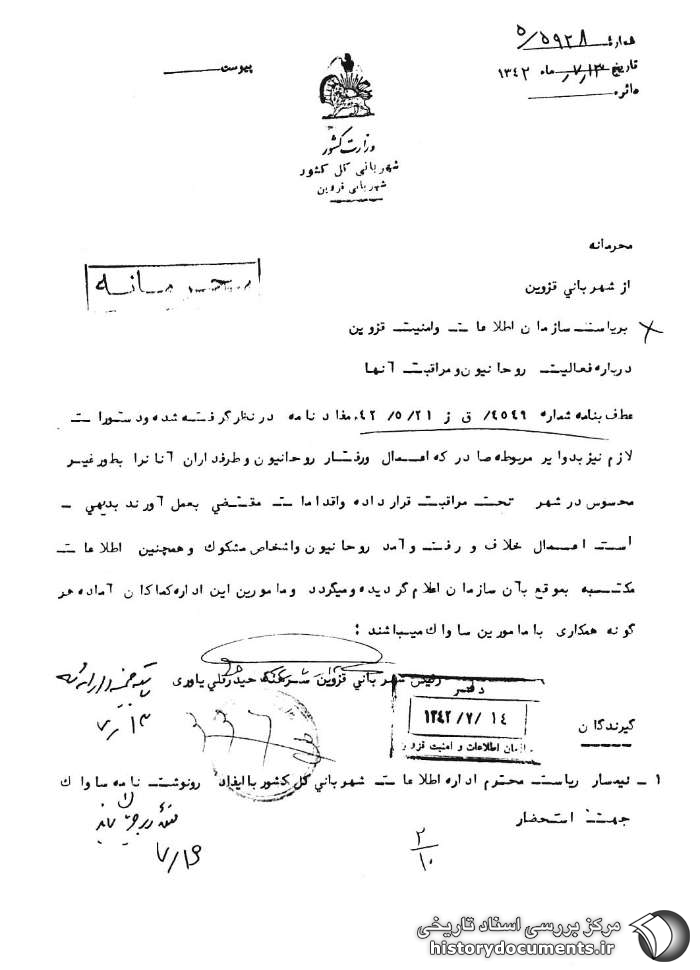 شماره ۵/۵۹۲۸
تاریخ ۷/۱۳ ماه ۱۳۴۲
دائره
پیوست
وزارت کشور
شهربانی کل کشور
شهربانی قزوین
محرمانه
محرمانه
از شهرباني قزوین
بریاست سازمان اطلاعات وامنیت قزوین
درباره فعالیت روحانیون و مراقبت آنها
عطف بنامه شماره ۴۵۴۹/ ق ز ۴۲/۵/۲۱ مفاد نامه در نظر گرفته شده و دستورات
لازم نیز بدوایر مربوطه صادر که اعمال ورفتار روحانیون و طرفداران آنانرا بطور غیر
محسوس در شهر تحت مراقبت قرار داده واقدامات مقتضي بعمل آورند بدیهي -
است اعمال خلاف و رفت وآمد روحانیون واشخاص مشکوك و همچنین اطلاعات
مکتسبه بموقع بآن سازمان اعلام گردیده ومیگردد ومامورین این اداره کماکان آماده هر
گونه همکاری با مامورین ساواك میباشند ؛
رئیس شهرباني قزوین سرهنگ حیدرقلي یاوری
دفتر
۱۳۴۲/۷/۱۴
سازمان اطلاعات و امنیت قزوین
۷/۱۳
گیرندگان
۱ - تیمسار ریاست محترم اداره اطلاعات شهرباني کل کشور با ایفاد رونوشت نامه ساواك
جهت استحضار
۲/۱۰
مرکز بررسی اسناد تاریخی
historydocuments.ir